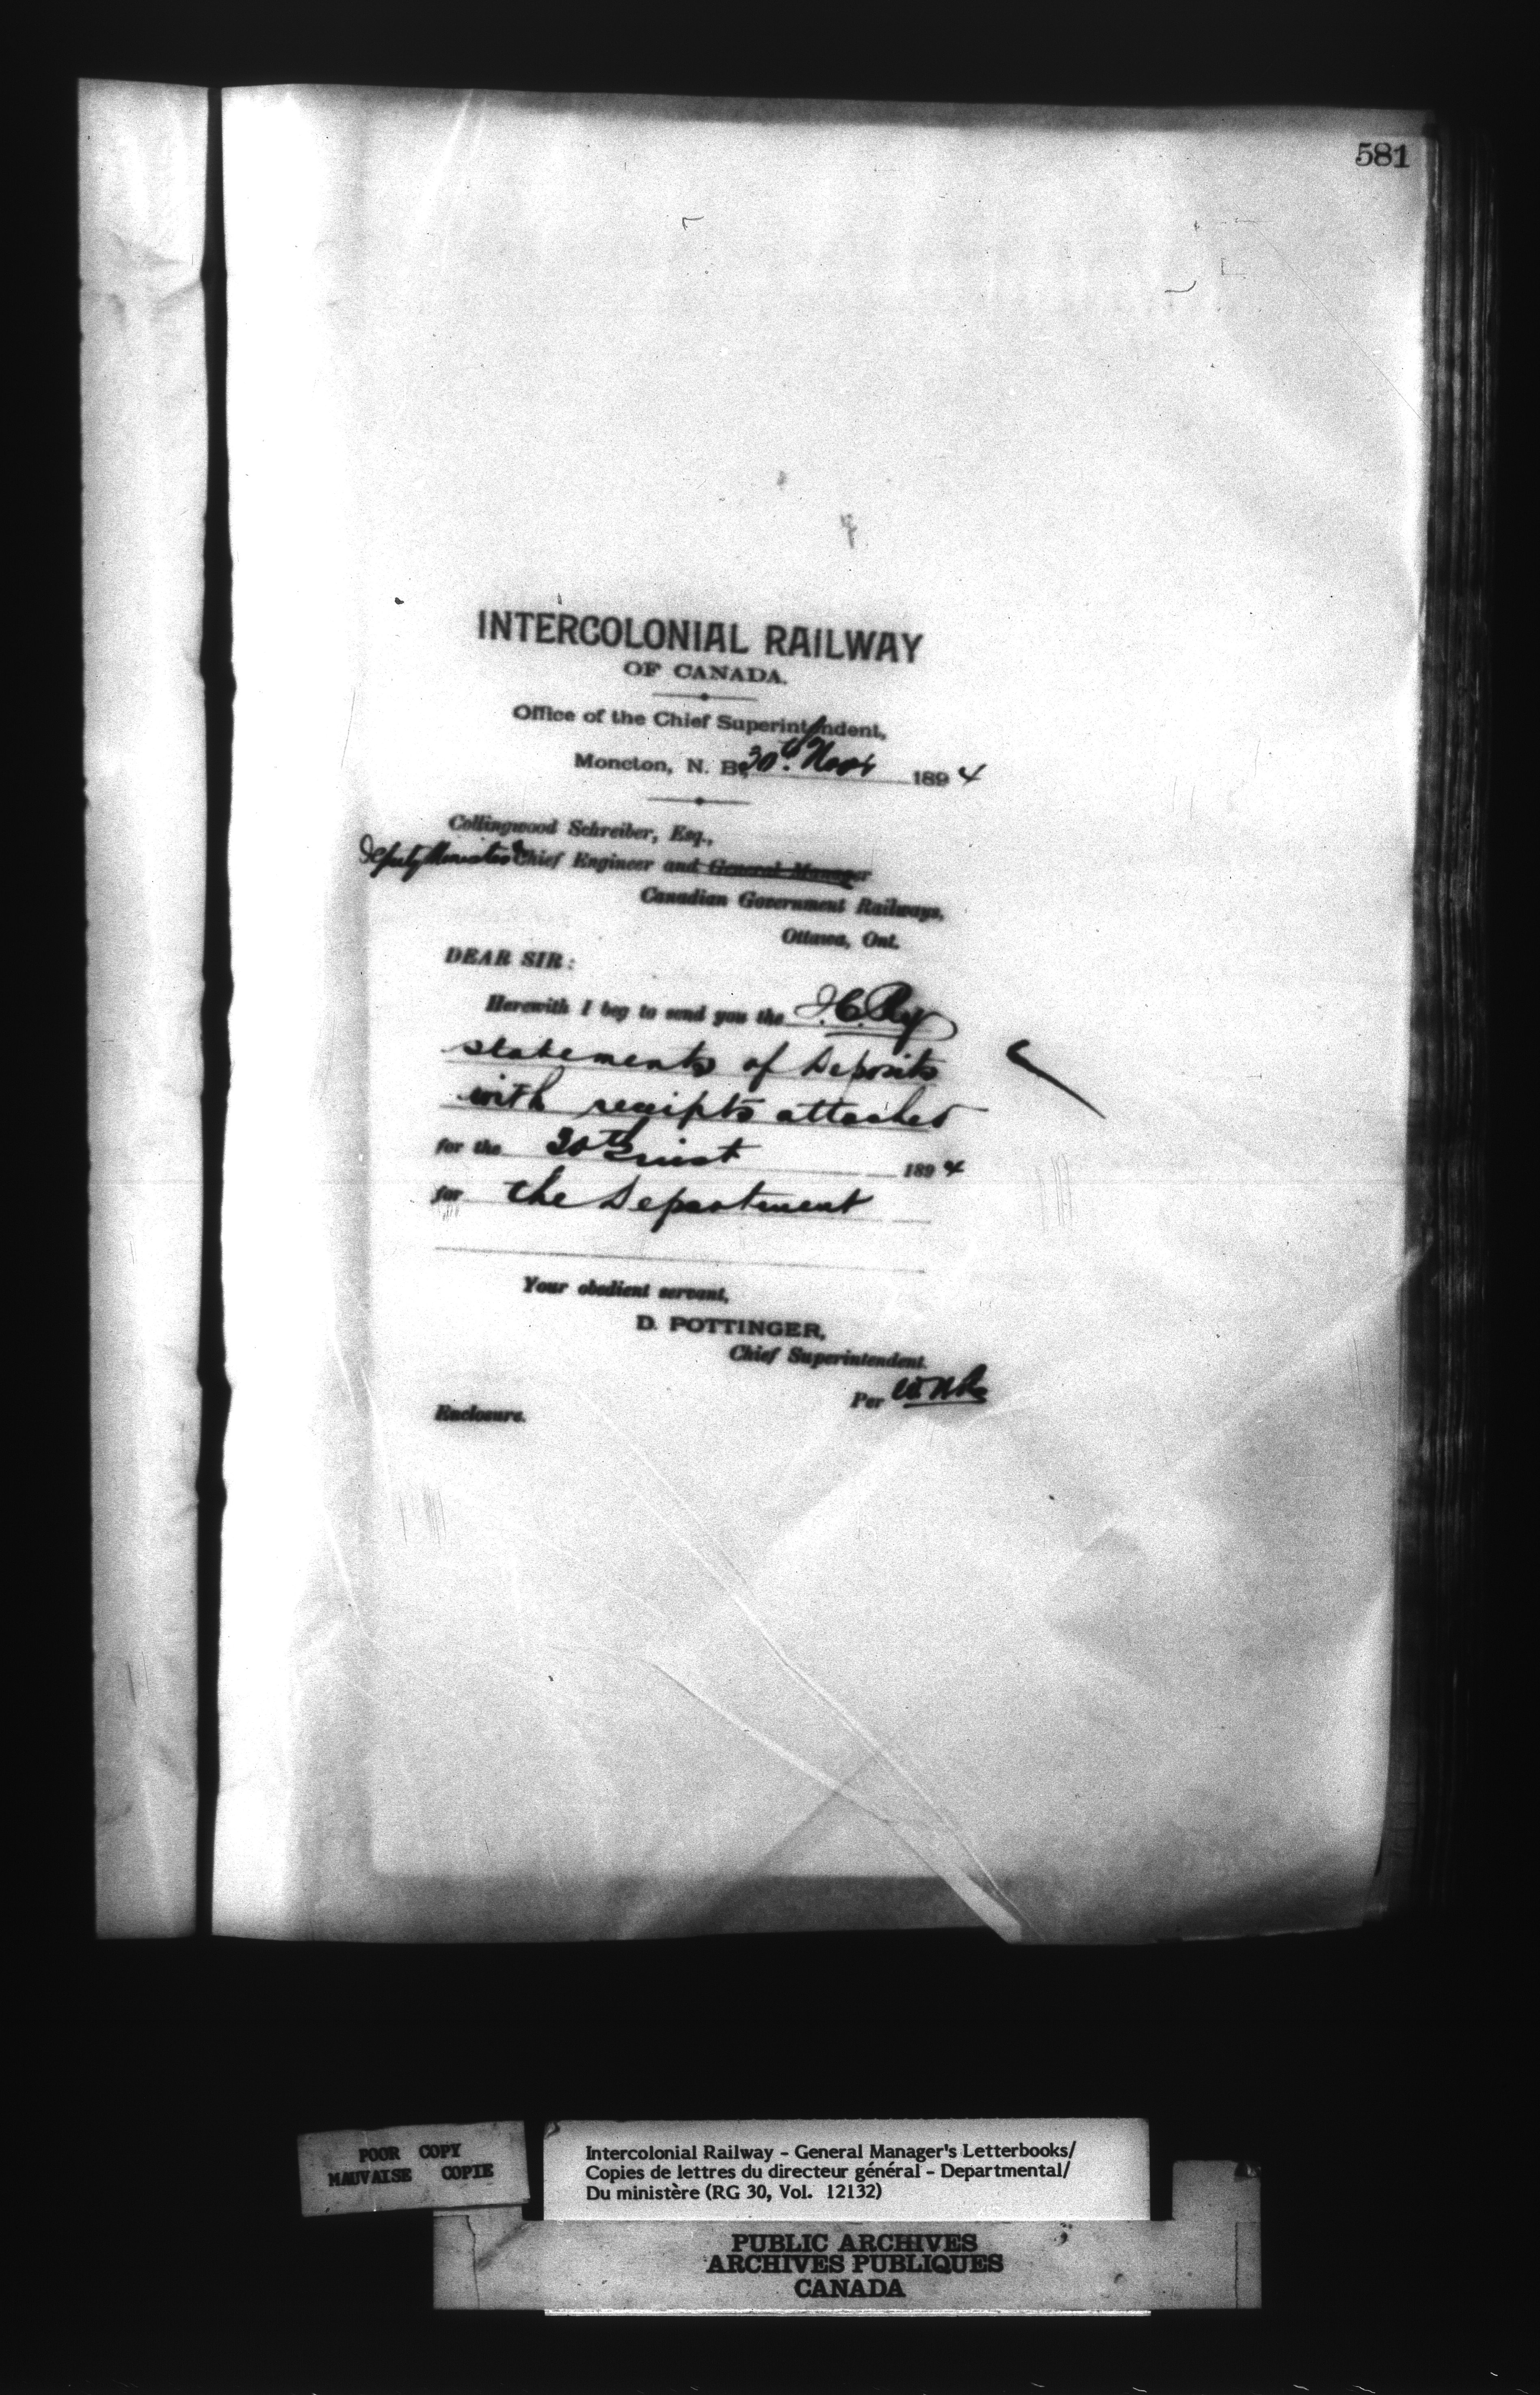 581
INTERCOLONIAL RAILWAY
OF CANADA.
Office of the Chief Superintendent,
Moncton, N. B., 30th Novr 1894
Collingwood Schreiber, Esq.,
Deputy Minister & Chief Engineer and General Manager
Canadian Government Railways,
Ottawa, Ont.
DEAR SIR:
Herewith I beg to send you the I.C. Ry
statements of Deposits
with receipts attached
for the 30th inst 1894
for the Department
Your obedient servant,
D. POTTINGER,
Chief Superintendent.
Per
Enclosure.
POOR COPY
MAUVAISE COPIE
Intercolonial Railway - General Manager's Letterbooks/
Copies de lettres du directeur général - Departmental/
Du ministère (RG 30, Vol. 12132)
PUBLIC ARCHIVES
ARCHIVES PUBLIQUES
CANADA